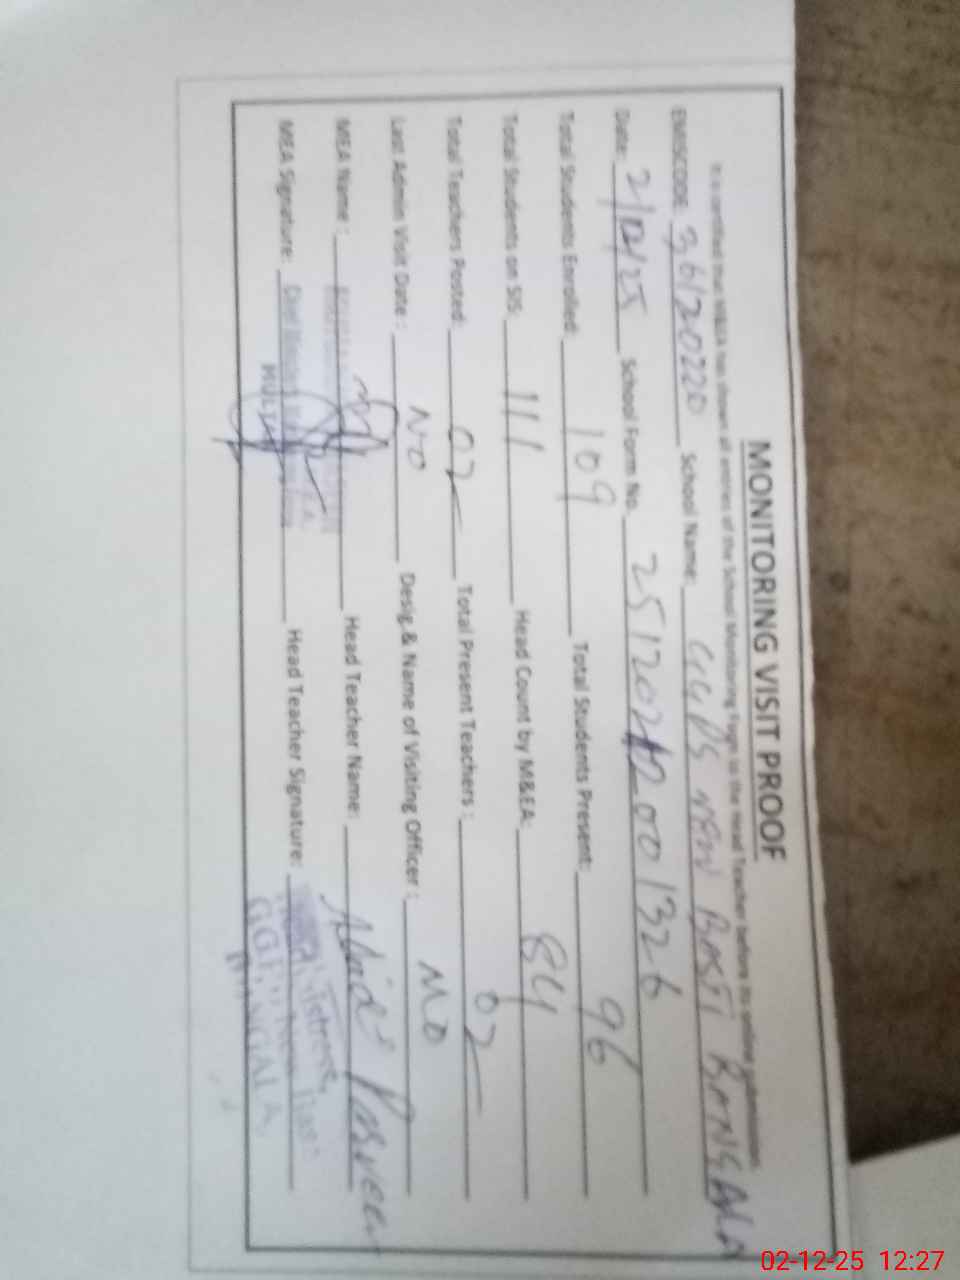 MONITORING VISIT PROOF
It is certified that M&EA has shown all entries of the School Monitoring Page to the Head Teacher before its online submission.
EMISCODE: 36120220 School Name: GGPS NEW BASTI BANGALA
Date: 2/12/25 School Form No. 
Total Students Enrolled: 109 Total Students Present: 96
Total Students on SIS: 111 Head Count by M&EA: 84
Total Teachers Posted: 02 Total Present Teachers: 02
Last Admin Visit Date: NO Desig & Name of Visiting Officer:
MEA Name: Head Teacher Name: Parveen
MEA Signature: Head Teacher Signature:
MULTAN
02-12-25 12:27